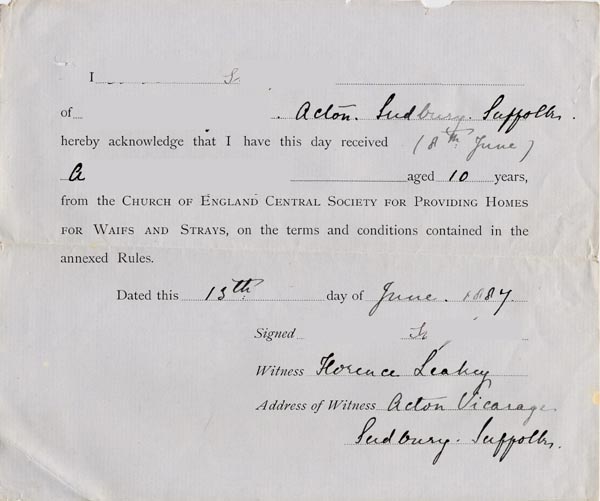 I S.
of Acton. Sudbury. Suffolk.
hereby acknowledge that I have this day received (8th June)
A aged 10 years,
from the Church of England Central Society for Providing Homes
for Waifs and Strays, on the terms and conditions contained in the
annexed Rules.
Dated this 13th day of June. 1887.
Signed
Witness Florence Leakey
Address of Witness Acton Vicarage
Sudbury. Suffolk.